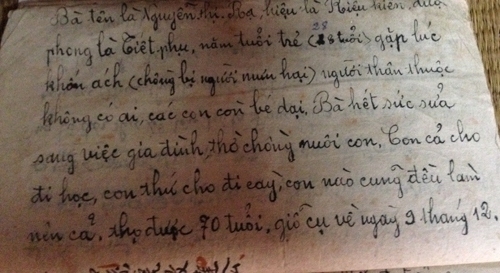 Bà tên là Nguyễn thị Ba, hiệu là Hiếu kiên, được
phong là Tiết phụ, năm tuổi trẻ (28 tuổi) gặp lúc
khốn ách (chồng bị người mưu hại) người thân thuộc
không có ai, các con còn bé dại. Bà hết sức sửa
sang việc gia đình, thờ chồng nuôi con. Con cả cho
đi học, con thứ cho đi cày, con nào cũng đều làm
nên cả. thọ được 70 tuổi, giỗ cụ về ngày 9 tháng 12.